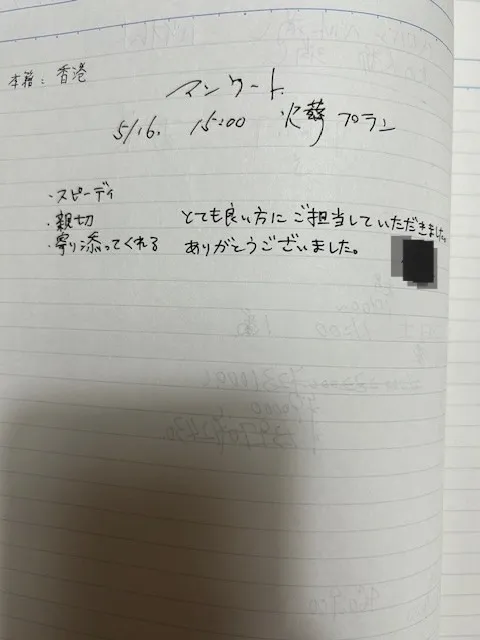 本籍: 香港
アンケート
5/16. 15:00 火葬プラン
・スピーディ
・親切 とても良い方にご担当していただきました。
・寄り添ってくれる ありがとうございました。